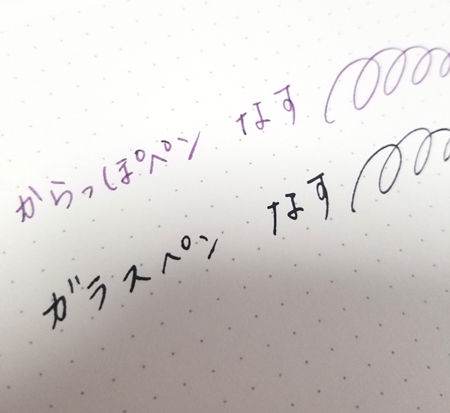 からっぽペン なす
ガラスペン なす